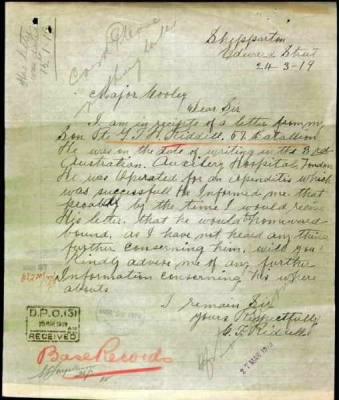 Shepparton
Edward Street
24-3-19
Major Hooley
Dear Sir
I am in receipts of a letter from my
Son Lt. G. F. H. Riddell, 59 Batallion
He was in the date of writing in the 3 rd
Australian. Auxilery Hospital, London
He was Operated for an apendities which
was successfull He Informed me that
probably by the time I would recive
His letter, that he would homeward
bound, as I have not heard any thing
further concerning him. will you
Kindly advise me of any further
Information concerning his where
abouts
I remain Sir
Yours Respectfully
G. F. Riddell
D.P.O. (3)
25 MAR 1919
RECEIVED
Base Records
27 MAR 1919